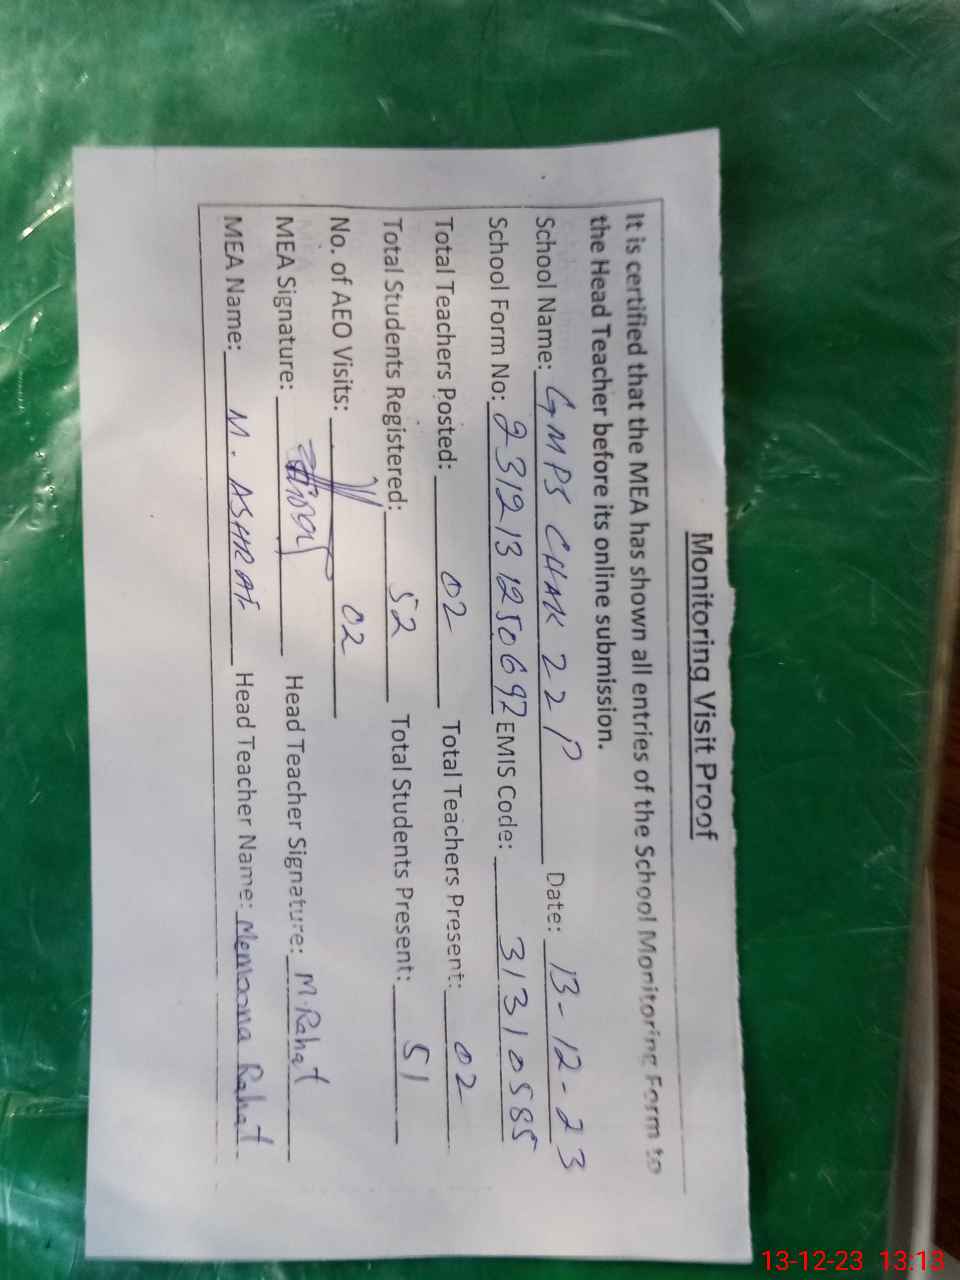 Monitoring Visit Proof
It is certified that the MEA has shown all entries of the School Monitoring Form to
the Head Teacher before its online submission.
School Name: GMPS CHAK 22 P Date: 13-12-23
School Form No: 2312131250692 EMIS Code: 31310585
Total Teachers Posted: 02 Total Teachers Present: 02
Total Students Registered: 52 Total Students Present: 51
No. of AEO Visits: 02
MEA Signature: Head Teacher Signature: M.Rahat
MEA Name: M. ASHRAF Head Teacher Name: Memoona Rahat
13-12-23 13:13